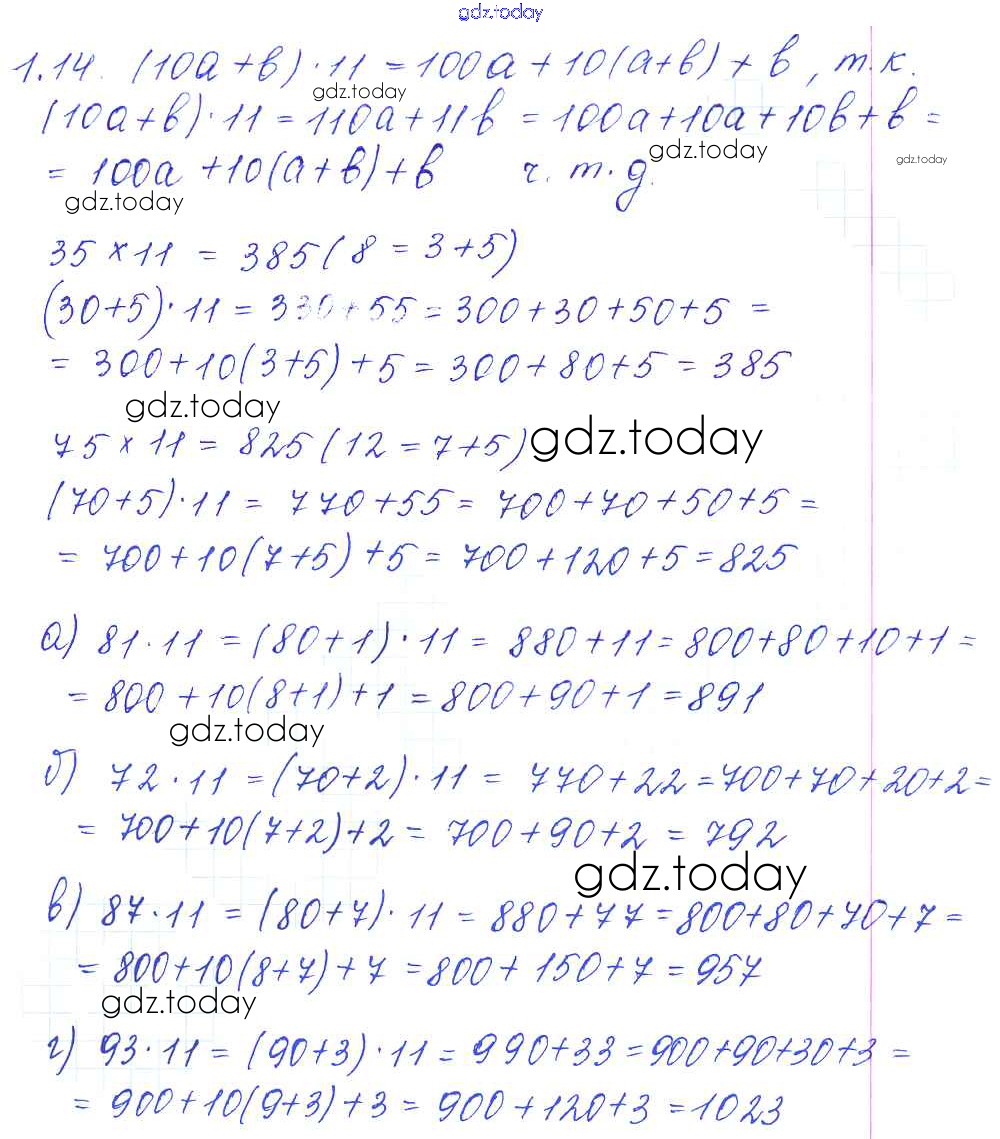 gdz.today
1.14. (10a+b)·11 = 100a+10(a+b)+b, т.к.
gdz.today
(10a+b)·11 = 110a+11b = 100a+10a+10b+b =
gdz.today
gdz.today
= 100a+10(a+b)+b ч.т.д.
gdz.today
35×11 = 385 (8 = 3+5)
(30+5)·11 = 330+55 = 300+30+50+5 =
= 300+10(3+5)+5 = 300+80+5 = 385
gdz.today
75×11 = 825 (12 = 7+5)
gdz.today
(70+5)·11 = 770+55 = 700+70+50+5 =
= 700+10(7+5)+5 = 700+120+5 = 825
а) 81·11 = (80+1)·11 = 880+11 = 800+80+10+1 =
= 800+10(8+1)+1 = 800+90+1 = 891
gdz.today
б) 72·11 = (70+2)·11 = 770+22 = 700+70+20+2 =
= 700+10(7+2)+2 = 700+90+2 = 792
gdz.today
в) 87·11 = (80+7)·11 = 880+77 = 800+80+70+7 =
= 800+10(8+7)+7 = 800+150+7 = 957
gdz.today
г) 93·11 = (90+3)·11 = 990+33 = 900+90+30+3 =
= 900+10(9+3)+3 = 900+120+3 = 1023